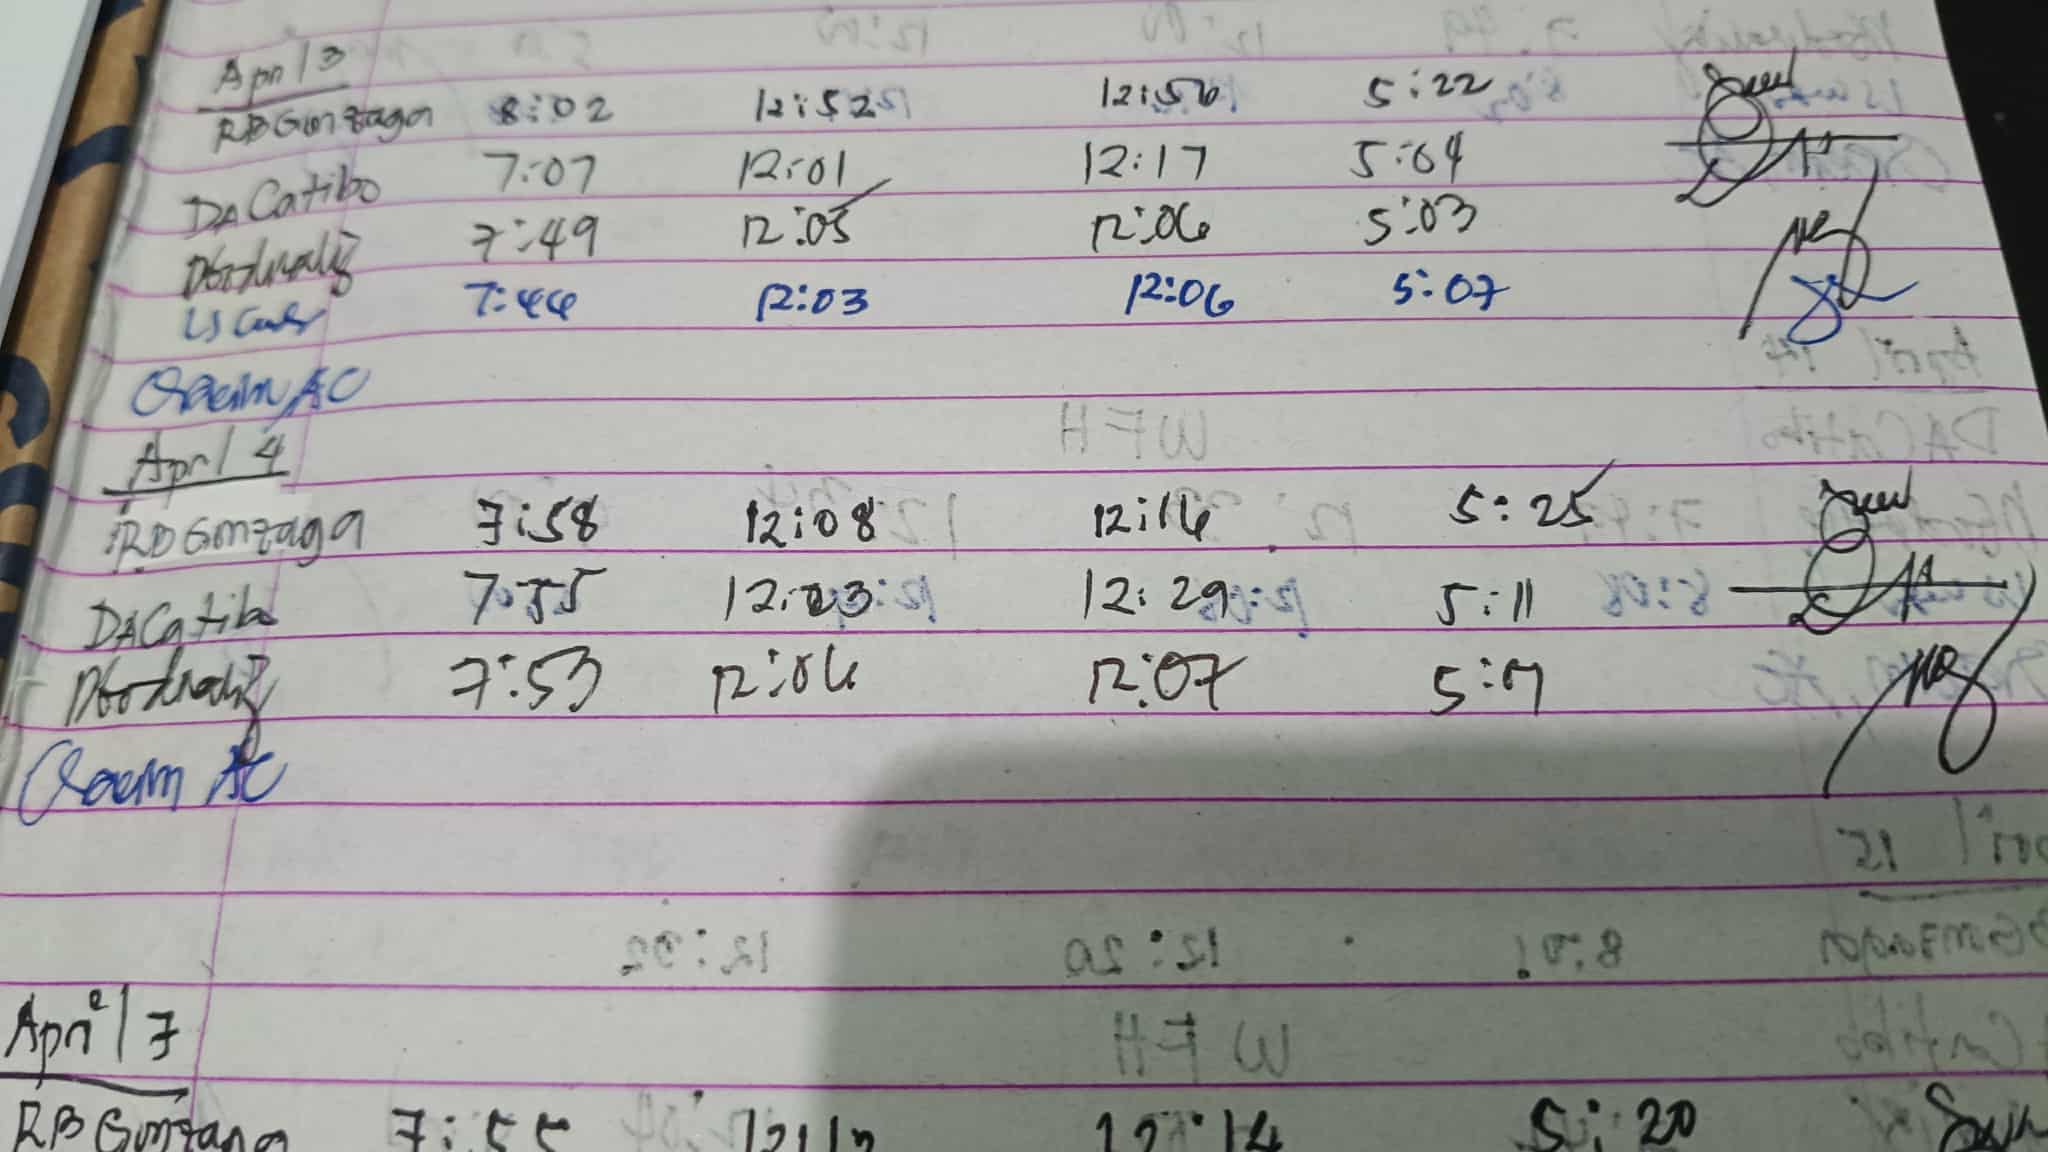 April 3
RB Gonzaga 8:02 12:52 12:56 5:22
DA Catibo 7:07 12:01 12:17 5:04
7:49 12:05 12:06 5:03
LS 7:44 12:03 12:06 5:07
AC
April 4
RB Gonzaga 7:58 12:08 12:14 5:25
DA Catibo 7:55 12:23 12:29 5:11
7:53 12:06 12:07 5:17
AC
April 7
RB Gonzaga 7:55 12:12 12:14 5:20